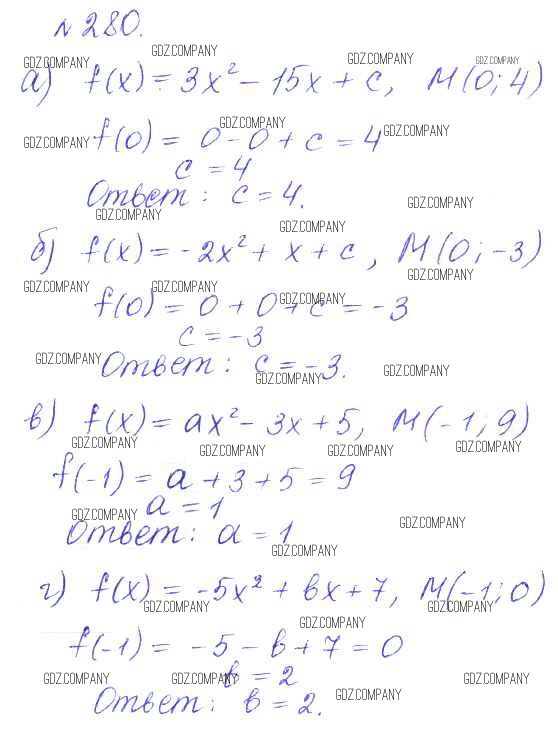 № 280.
GDZ.COMPANY GDZ.COMPANY GDZ.COMPANY GDZ.COMPANY
а) f(x) = 3x² - 15x + c, M(0; 4)
GDZ.COMPANY GDZ.COMPANY GDZ.COMPANY
f(0) = 0 - 0 + c = 4
c = 4
Ответ: c = 4.
GDZ.COMPANY GDZ.COMPANY
GDZ.COMPANY
б) f(x) = -2x² + x + c, M(0; -3)
GDZ.COMPANY
GDZ.COMPANY GDZ.COMPANY GDZ.COMPANY
f(0) = 0 + 0 + c = -3
c = -3
GDZ.COMPANY GDZ.COMPANY GDZ.COMPANY
Ответ: c = -3.
в) f(x) = ax² - 3x + 5, M(-1; 9)
GDZ.COMPANY GDZ.COMPANY GDZ.COMPANY GDZ.COMPANY
f(-1) = a + 3 + 5 = 9
a = 1
GDZ.COMPANY GDZ.COMPANY
Ответ: a = 1
GDZ.COMPANY
г) f(x) = -5x² + bx + 7, M(-1; 0)
GDZ.COMPANY GDZ.COMPANY
GDZ.COMPANY
f(-1) = -5 - b + 7 = 0
b = 2
GDZ.COMPANY GDZ.COMPANY GDZ.COMPANY
Ответ: b = 2.
GDZ.COMPANY